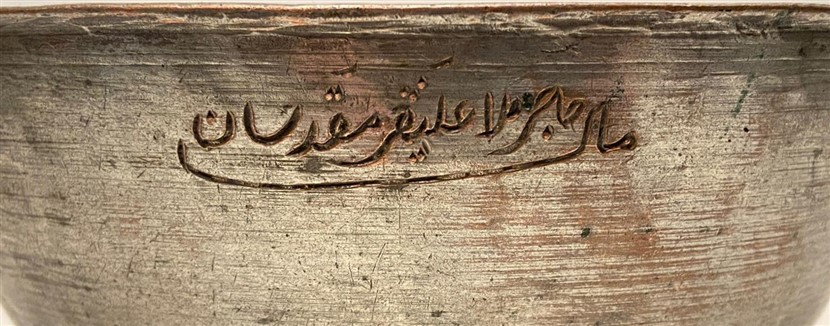 مال حاجی ملا علینقی مقدسان